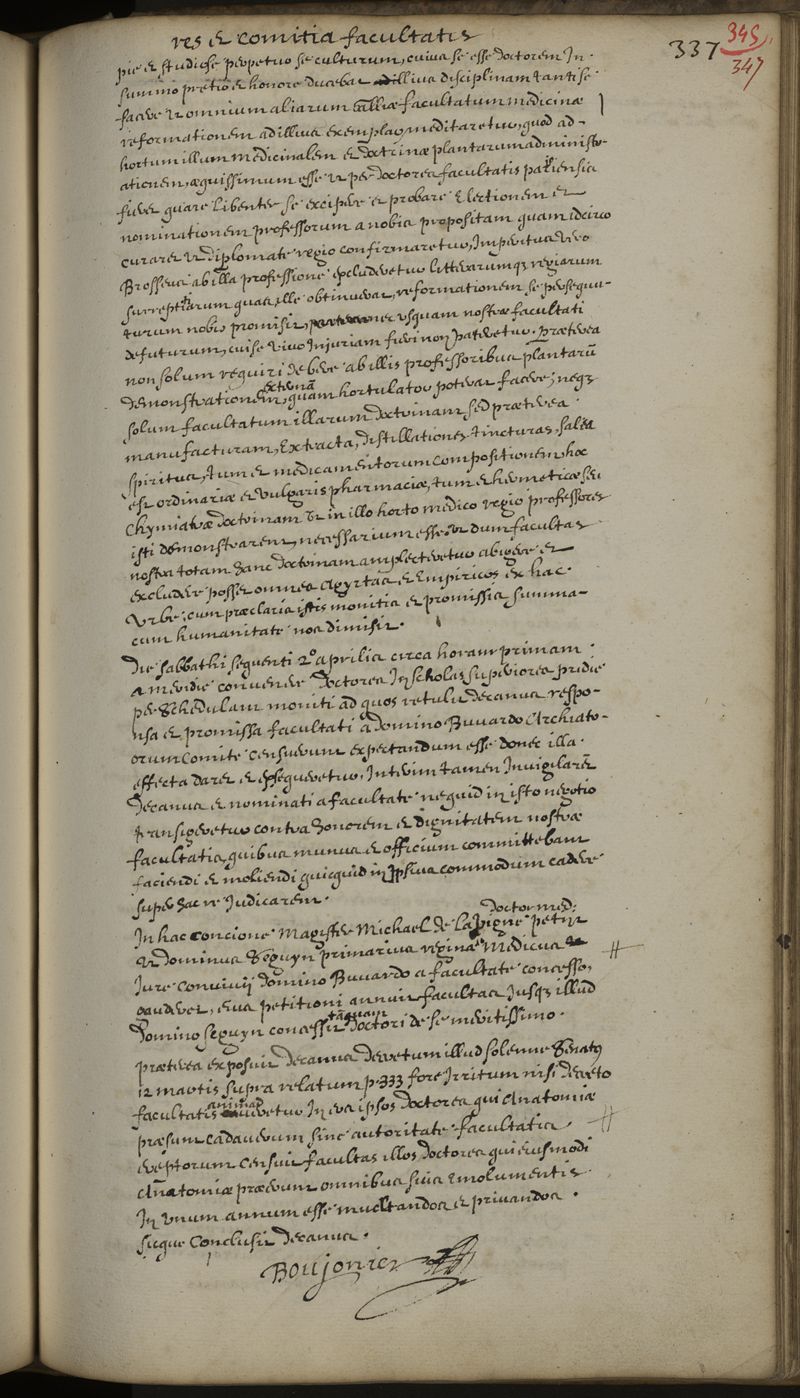 res et comitia facultatis
337
345
347
pie et studiose perpetuo se culturum, cuius se esse doctorem In
summo pretio et honore ducebat illius disciplinam tanti se
facere ut omnium aliarum Galliæ facultatum medicinæ
reformationem ad illius exemplar meditaretur, quod ad
hortum illum medicinalem et doctrinæ plantarum administr-
ationem, æquissimum esse ut per doctores facultatis parisiensis
fieret quare libenter se excipere et probare Electionem et
nominationem professorum a nobis propositam quam idcirco
curaret ut diplomate regio confirmaretur, Imperitus vero
Brosseus ab illa professione excluderetur litterarumq3 regiarum
surreptitiarum quas ille obtinuerat, reformationem se persequu-
turum nobis promisit, nec usquam nostræ facultati
defuturum, cui se vivo Injuriam fieri non pateretur. Præterea
non solum requiri debere ab illis professoribus plantarū
demonstrationem externā, quam hortulator poterat facere; neq3
solum facultatum illarum doctrinam sed præterea
manufacturam, Extracta, distillationes tincturas, salia
spiritus, tum et medicamentorum compositionem, hoc
est ordinariæ et vulgaris pharmaciæ, tum et hermeticæ seu
Chymiatræ doctrinam ut in illo horto medico regio professores
isti demonstrarent, necessarium esse dum facultas
nostra totam hanc doctrinam amplecteretur abigere et
excludere posset omnes agyrtas et Empiricos ex hac
Urbe; cum præclaris istis monitis et promissis summa-
cum humanitate nos dimisit.
Die sabbathi sequenti 2° aprilis circa horam primam
a meridie convenere doctores In scholas superiores pridie
per schedulam moniti ad quos retulit decanus respo-
nsa et promissa facultati a domino Buuardo Archiatr-
orum Comite censuerunt expectandum esse donec illa
effecta daret et exsequeretur, Interim tamen Invigilarēt
Decanus et nominati a facultate nequid in isto negotio
transigeretur contra honorem et dignitatem nostræ
facultatis, quibus munus et officium committebant
faciendi et moliendi quicquid in Ipsius commodum cadere
super hac re Judicarent.
In hac concione Magister Michael de la Vigne doctor med: petiit
ut dominus Seguyn primarius reginæ Medicus
Jure convivij domino Buuardo a facultate concesso,
gauderet, eius petitioni annuit facultas Jusq3 illud
Domino seguyn concessit tāquam doctori de se meritissimo.
præterea exposuit decanus decretum illud solenne Senatus
12 martis supra relatum p 333 fore Irritum nisi decreto
facultatis animadverteretur In eos ipsos doctores qui Anatomiæ
præsunt cadaverum sine autoritate facultatis
ereptorum censuit facultas illos doctores qui eiusmodi
Anatomiæ præerunt omnibus suis Emolumentis
In unum annum esse mulctandos et privandos.
sicque Conclusit decanus.
Boujonier